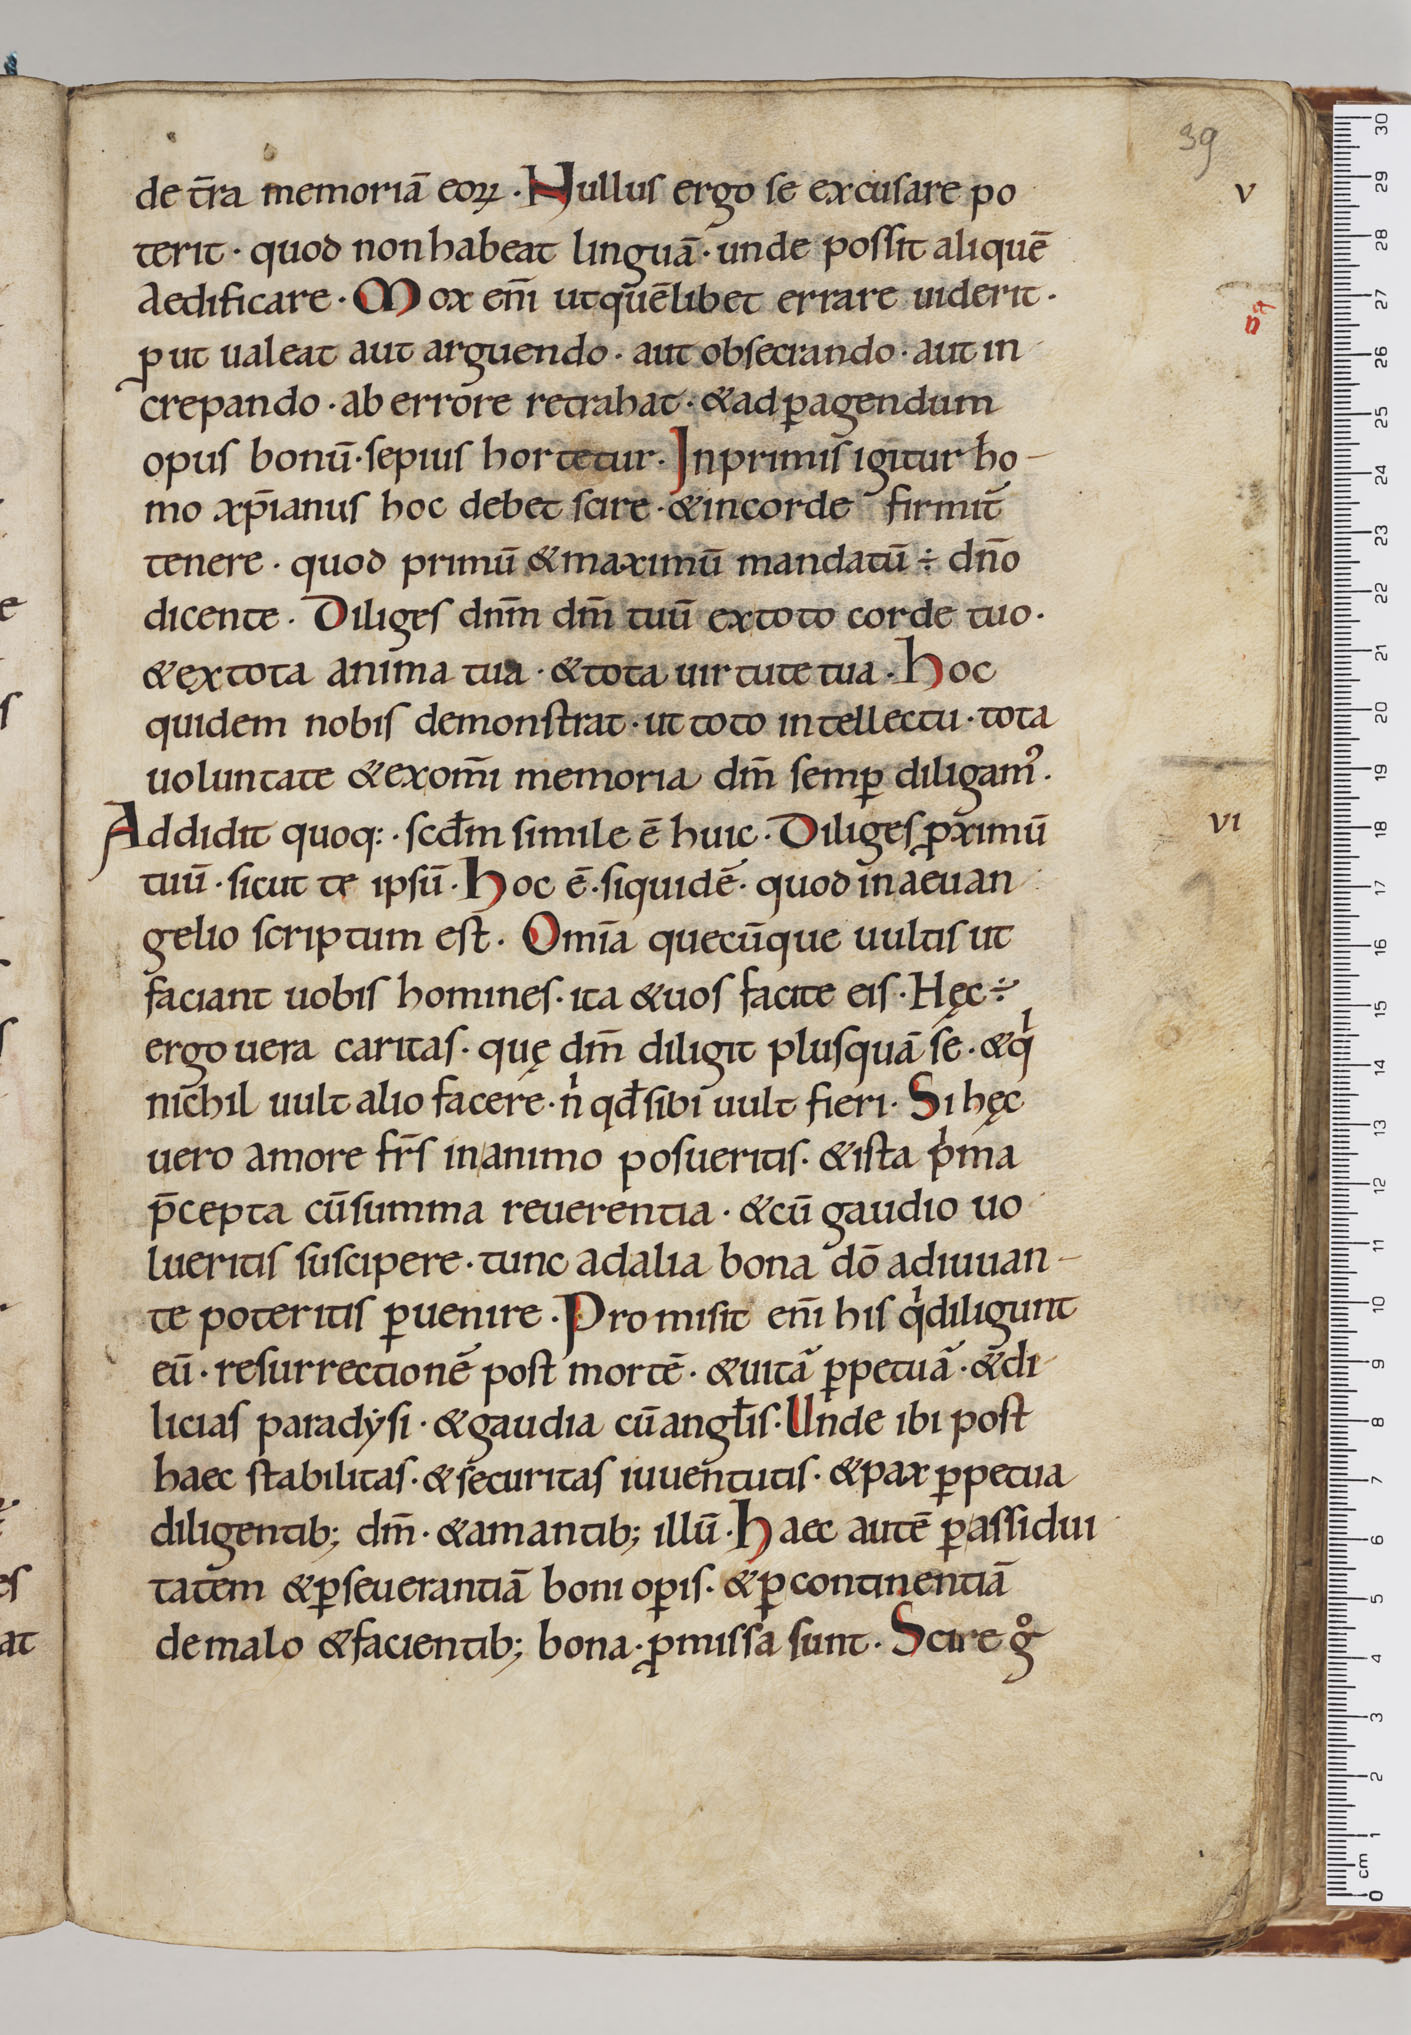 39
de t̄ra memoriā eoꝝ · Nullus ergo se excusare po
v
terit · quod non habeat linguā · unde possit aliquē
aedificare · Mox eni̅ ut quēlibet errare uiderit ·
ꝓut ualeat aut arguendo · aut obsecrando · aut in
crepando · ab errore retrahat · & ad ꝑagendum
opus bonū · sepius hortetur · In primis igitur ho-
mo xp̄ianus hoc debet scire · & in corde firmit̄
tenere · quod primū & maximū mandatū ÷ dn̄o
dicente · Diliges dn̄m dm̄ tuū ex toto corde tuo ·
& ex tota anima tua · & tota uirtute tua · Hoc
quidem nobis demonstrat · ut toto intellectu · tota
uoluntate & ex om̄i memoria dm̄ semꝑ diligam᾿ ·
Addidit quoq: · scd̄m simile ē huic · Diliges ꝓximū
vi
tuū · sicut te ipsū · Hoc ē · siquidē · quod in aeuan
gelio scriptum est̄ · Om̄ia quecūque uultis ut
faciant uobis homines · ita & uos facite eis · Hęc ÷
ergo uera caritas · quę dm̄ diligit plusquā se · & qͥ
nichil uult alio facere · nͥ qd̄ sibi uult fieri · Si hęc
uero amore fr̄s in animo posueritis · & ista pͥma
p̄cepta cū summa reuerentia · & cū gaudio uo
lueritis suscipere · tunc ad alia bona dō adiuuan-
te poteritis ꝑuenire · Promisit eni̅ his qͥ diligunt
eū · resurrectionē post mortē · & uitā ꝑpetuā · & di-
licias paradẏsi · & gaudia cū angl̄is · Unde ibi post
haec stabilitas · & securitas iuuentutis · & pax ꝑpetua
diligentib; dm̄ · & amantib; illū · Haec autē ꝑ assidui
tatem & ꝑseuerantiā boni oꝑis · & ꝑ continentiā
de malo & facientib; bona · ꝓmissa sunt · Scire gͦ